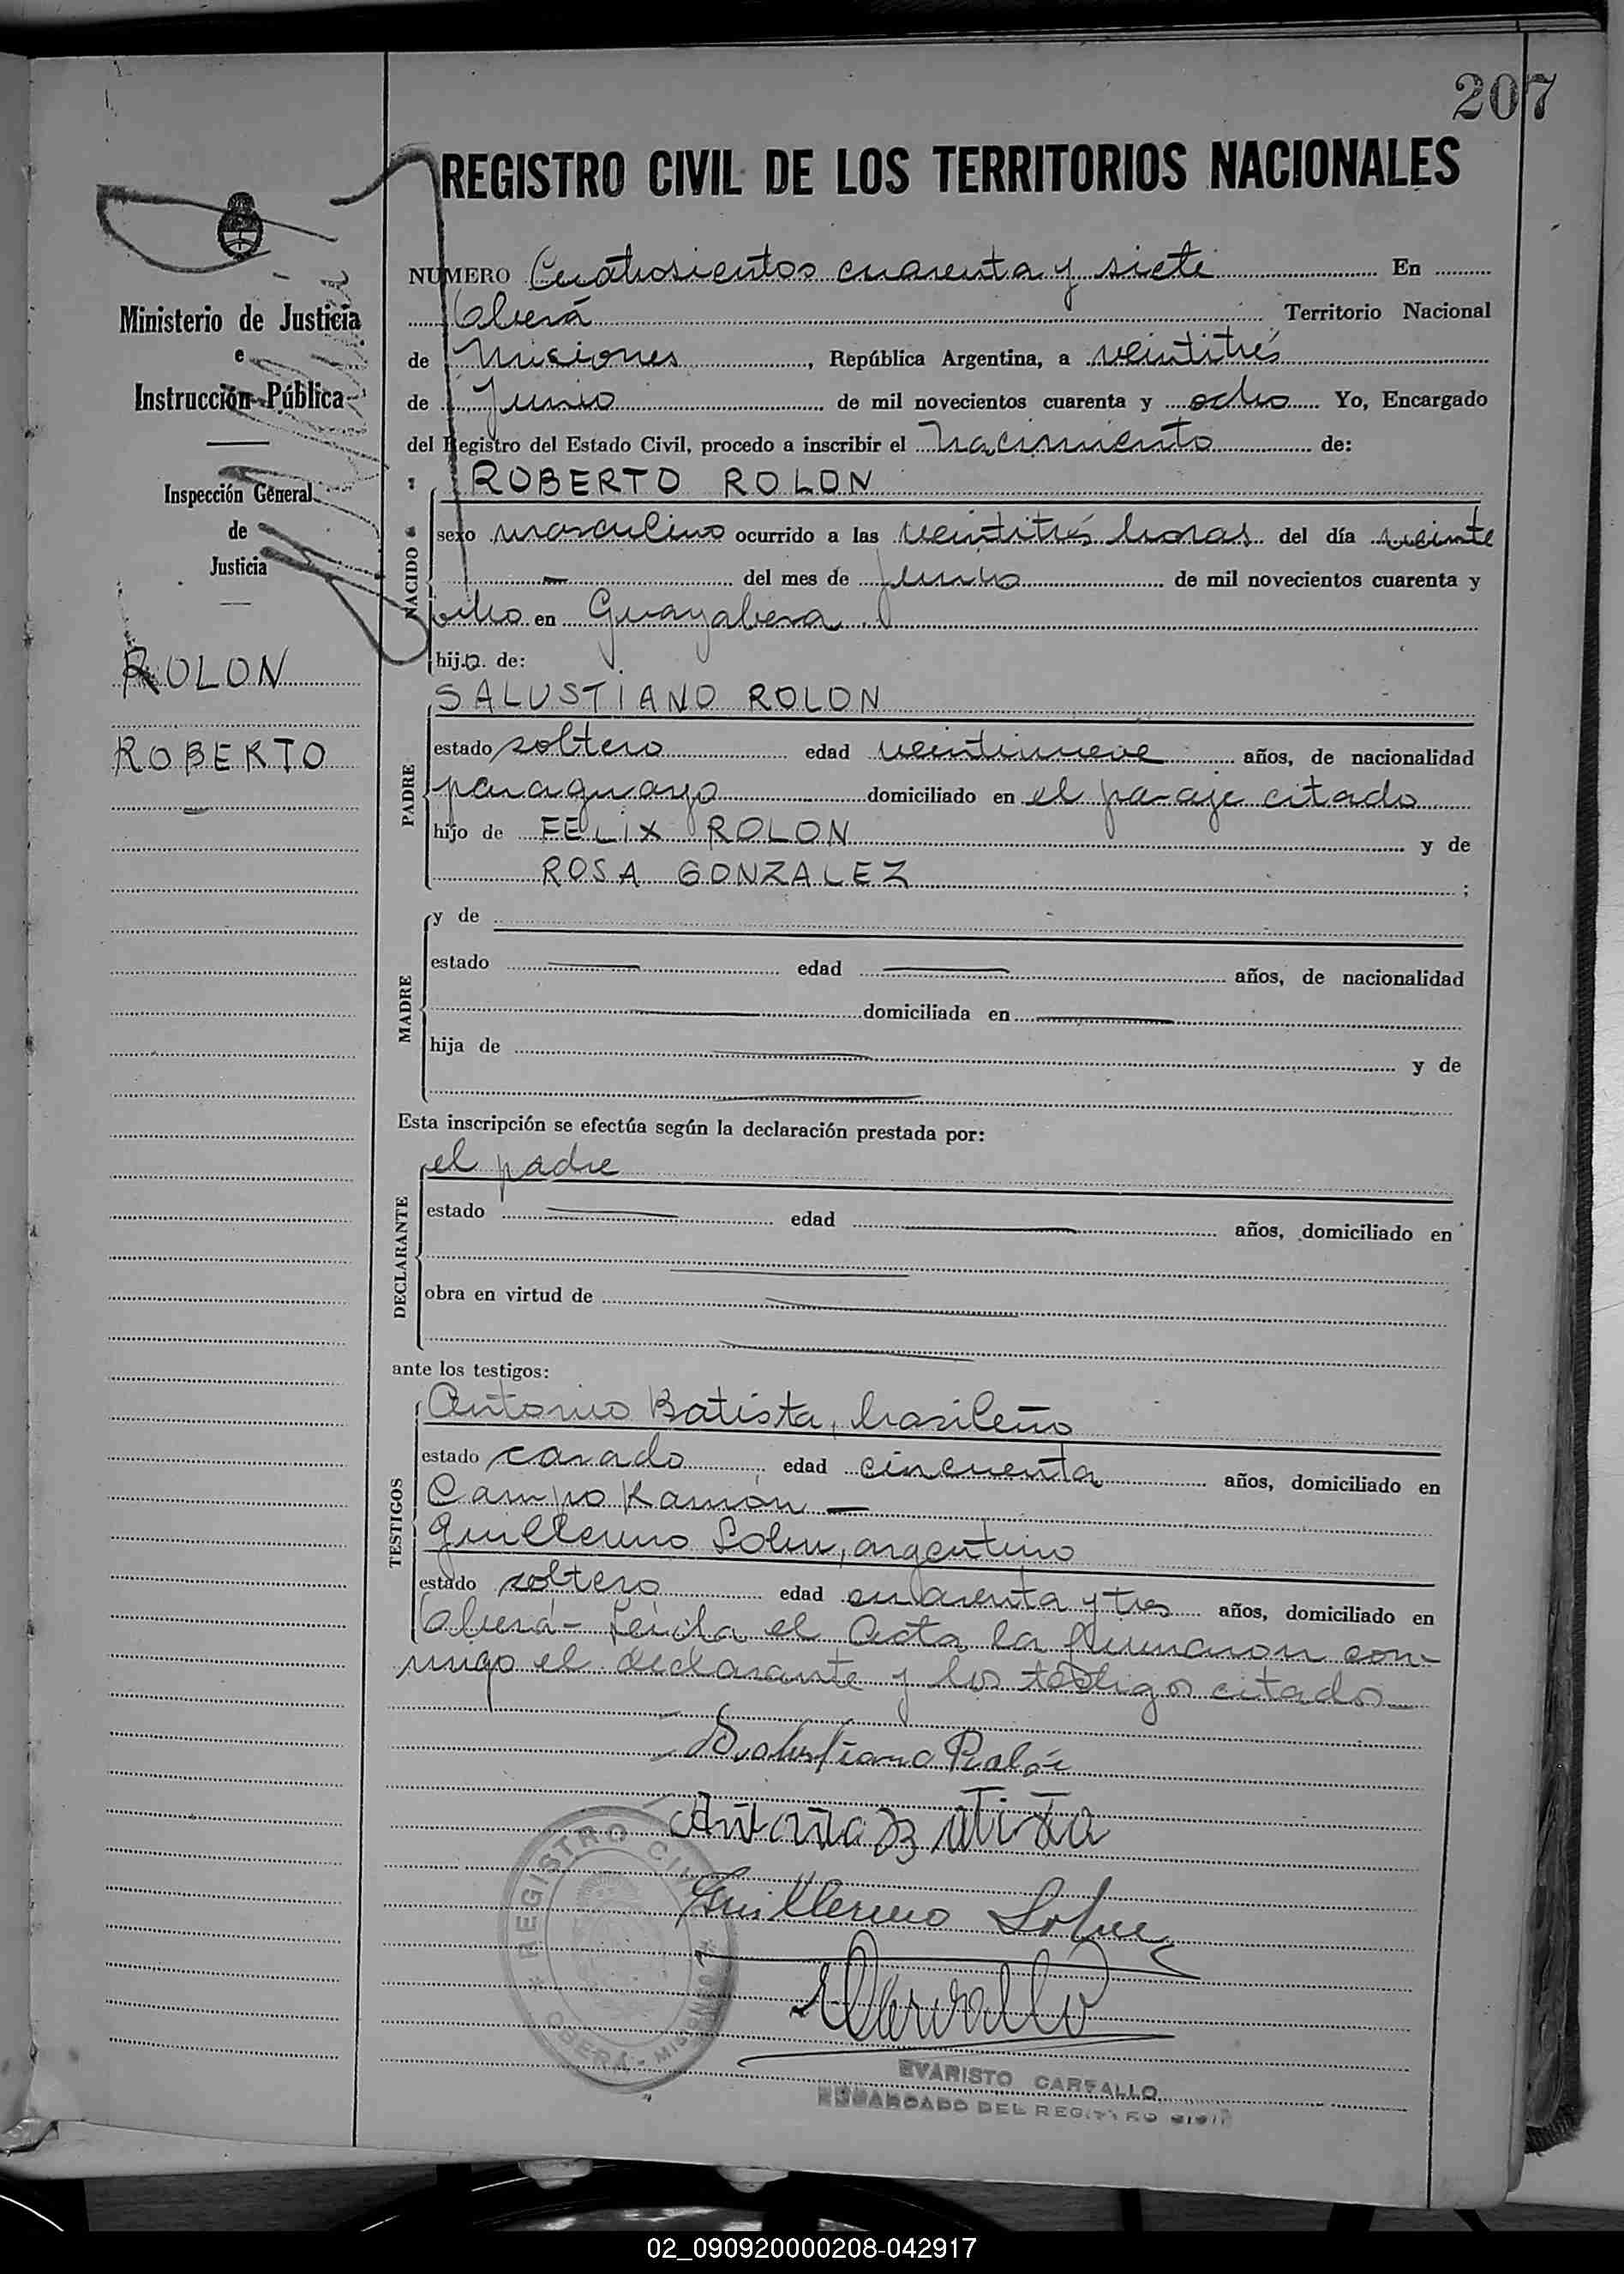 207
REGISTRO CIVIL DE LOS TERRITORIOS NACIONALES
Ministerio de Justicia
e
Instrucción Pública
Inspección General
de
Justicia
ROLON
ROBERTO
NUMERO Cuatrosientos cuarenta y siete En
Oberá Territorio Nacional
de Misiones, República Argentina, a veintitrés
de Junio de mil novecientos cuarenta y ocho Yo, Encargado
del Registro del Estado Civil, procedo a inscribir el nacimiento de:
ROBERTO ROLON
NACIDO
sexo masculino ocurrido a las veintitrés horas del día veinte
del mes de junio de mil novecientos cuarenta y
ocho en Guayabera
hijo de:
SALUSTIANO ROLON
PADRE
estado soltero edad veintinueve años, de nacionalidad
paraguayo domiciliado en el paraje citado
hijo de FELIX ROLON y de
ROSA GONZALEZ ;
MADRE
y de
estado edad años, de nacionalidad
domiciliada en
hija de y de
Esta inscripción se efectúa según la declaración prestada por:
DECLARANTE
el padre
estado edad años, domiciliado en
obra en virtud de
ante los testigos:
TESTIGOS
Antonio Batista, brasileño
estado casado edad cincuenta años, domiciliado en
Campo Ramón —
Guillermo, argentino
estado soltero edad cuarenta y tres años, domiciliado en
Oberá - Leída el Acta la firmaron con-
migo el declarante y los testigos citados
Salustiano Rolón
Antonio Batista
Guillermo
REGISTRO CIVIL
OBERA - MISIONES
EVARISTO CARVALLO
ENCARGADO DEL REGISTRO CIVIL
02_090920000208-042917